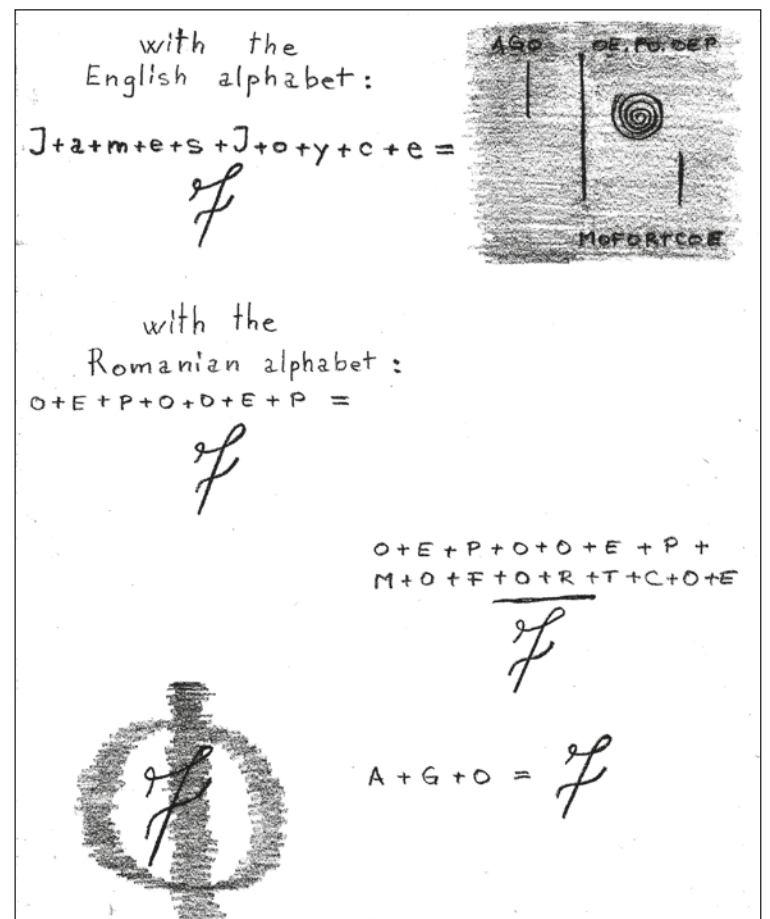 with the
English alphabet:
J+a+m+e+s+J+o+y+c+e =
7
AGO
MOFORTCOE
with the
Romanian alphabet:
O+E+P+O+D+E+P =
7
O+E+P+O+O+E+P+
M+O+F+O+R+T+C+O+E
7
A+G+O = 7
7